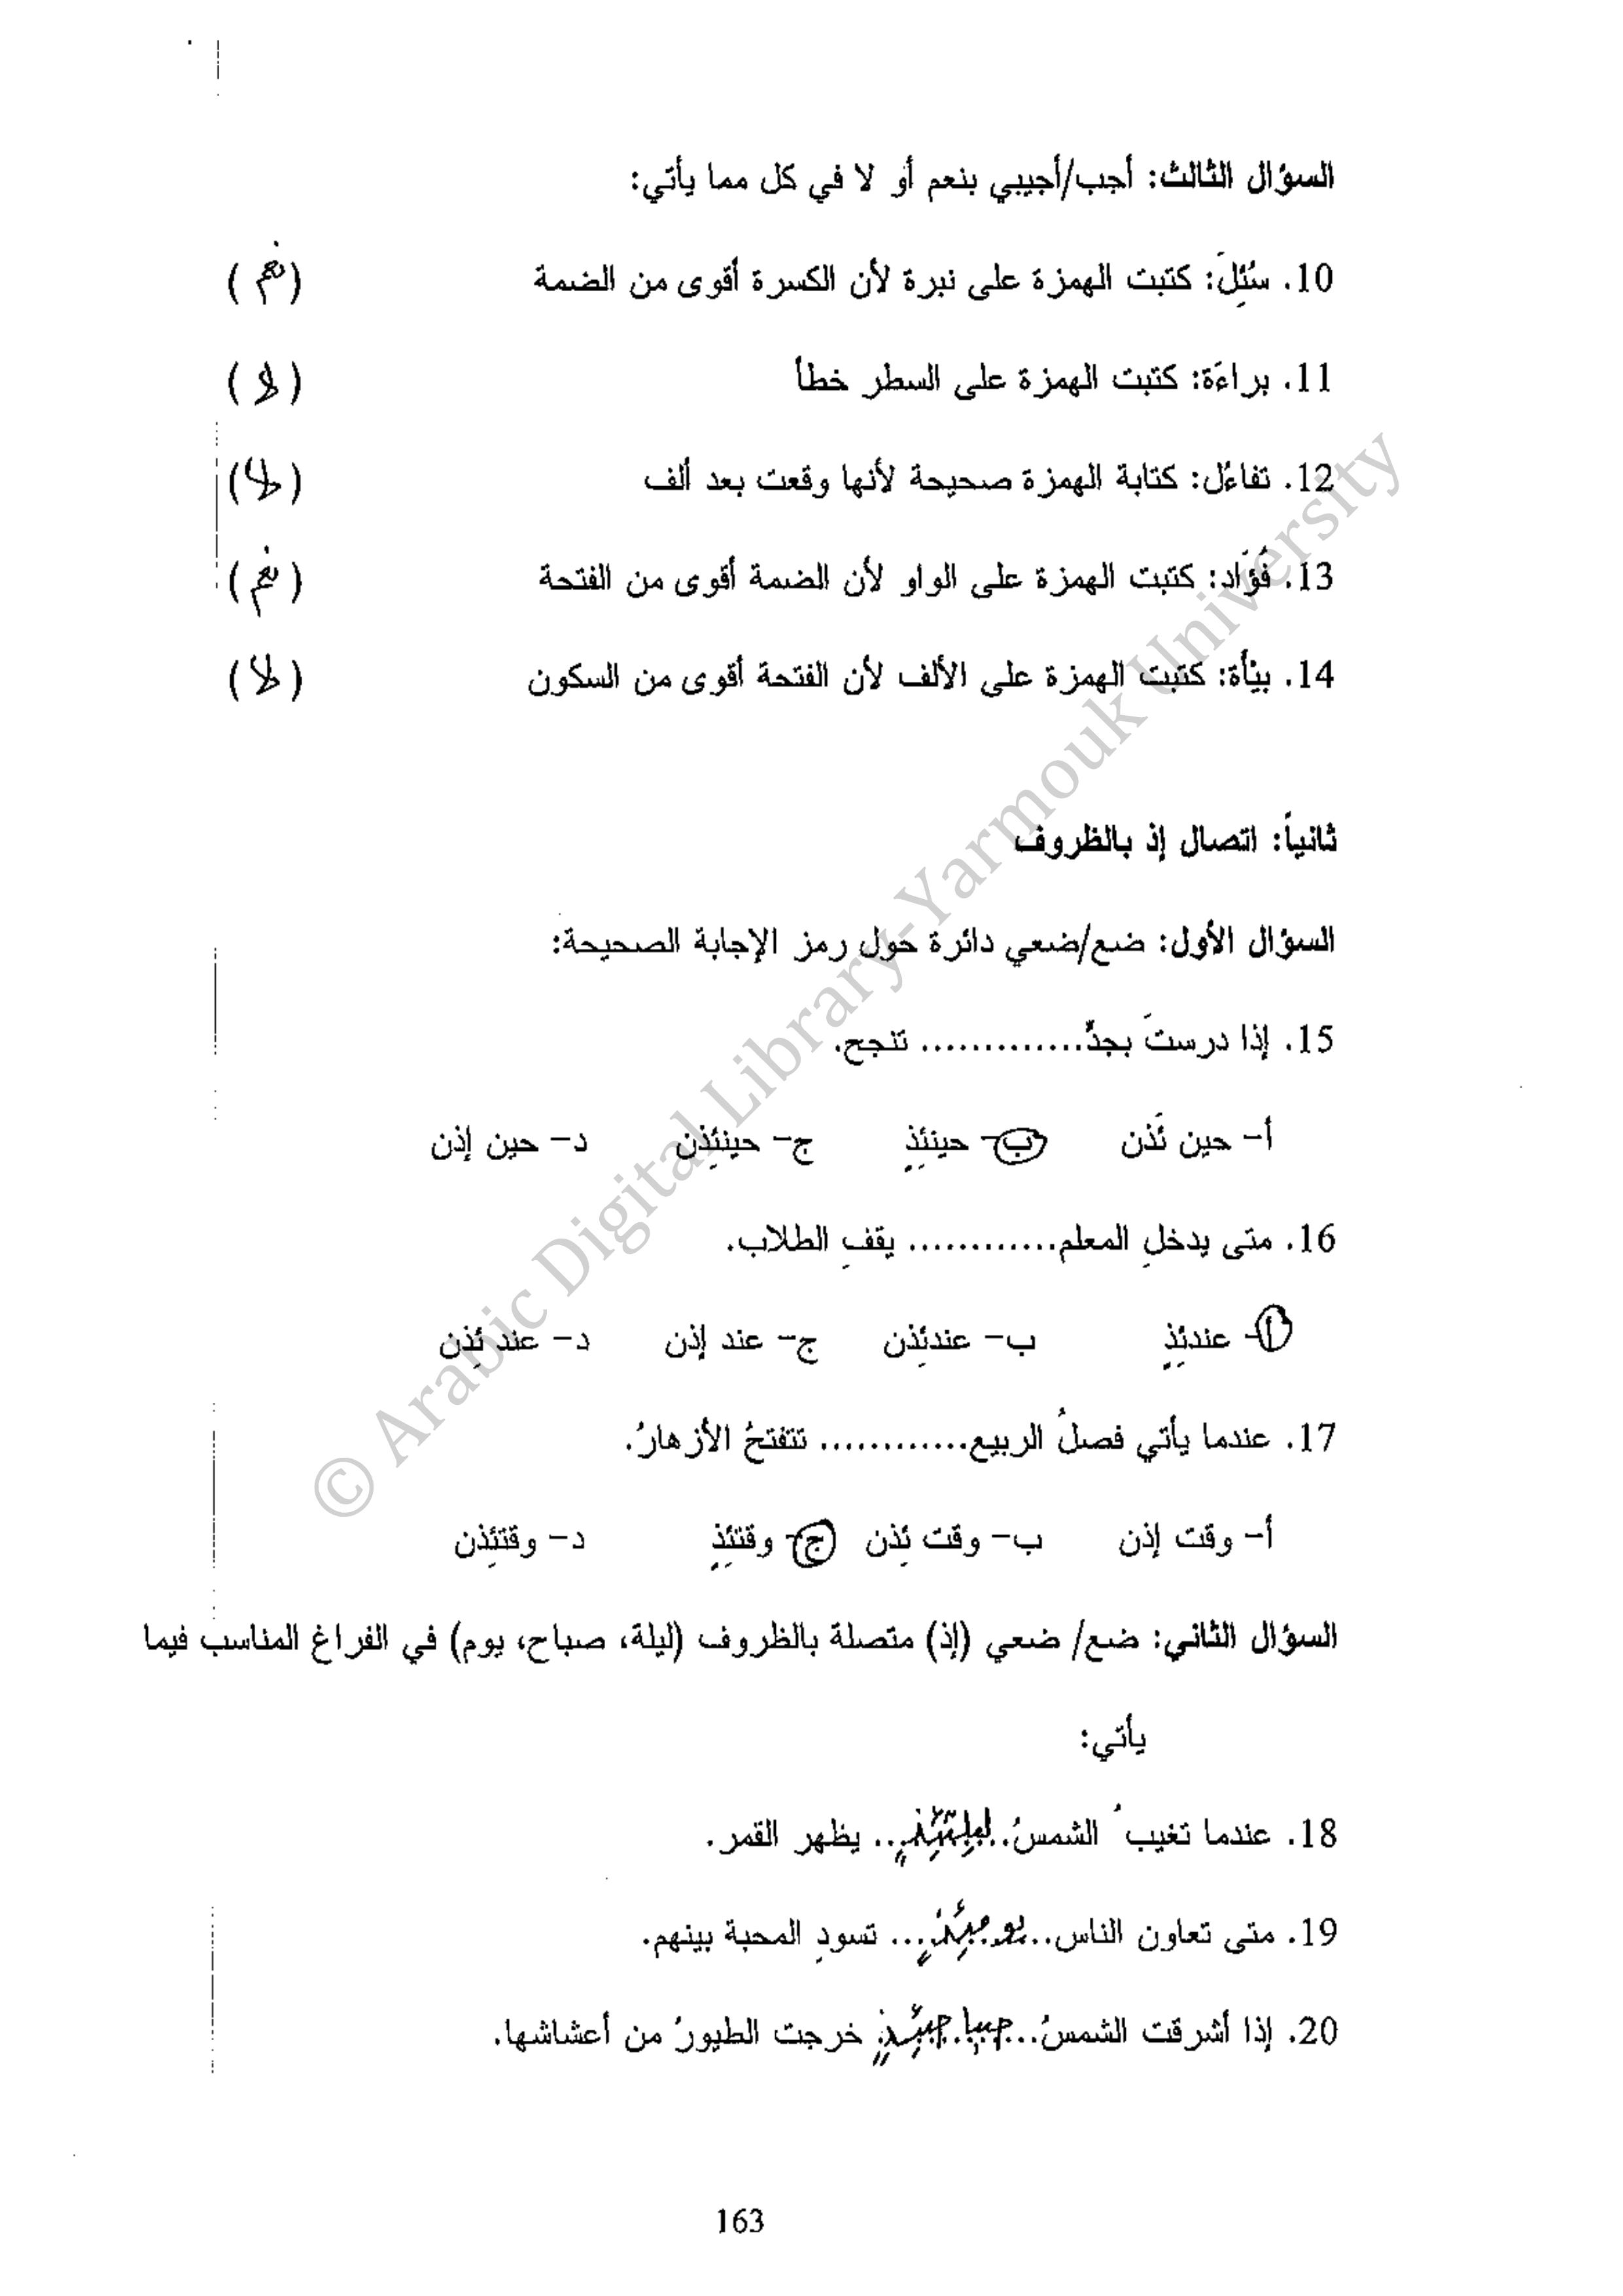 السؤال الثالث: أجب/أجيبي بنعم أو لا في كل مما يأتي:
10. سُئِلَ: كتبت الهمزة على نبرة لأن الكسرة أقوى من الضمة (نعم)
11. براءَة: كتبت الهمزة على السطر خطأ (لا)
12. تفاءُل: كتابة الهمزة صحيحة لأنها وقعت بعد ألف (لا)
13. فُؤَاد: كتبت الهمزة على الواو لأن الضمة أقوى من الفتحة (نعم)
14. بيْأَة: كتبت الهمزة على الألف لأن الفتحة أقوى من السكون (لا)
ثانياً: اتصال إذ بالظروف
السؤال الأول: ضع/ضعي دائرة حول رمز الإجابة الصحيحة:
15. إذا درستَ بجدٍّ............. تنجح.
أ- حين ئَذن ب- حينئِذٍ ج- حينئِذن د- حين إذن
16. متى يدخلِ المعلم............ يقفِ الطلاب.
أ- عندئِذٍ ب- عندئِذن ج- عند إذن د- عند ئِذن
17. عندما يأتي فصلُ الربيع............ تتفتحُ الأزهارُ.
أ- وقت إذن ب- وقت ئِذن ج- وقتئِذٍ د- وقتئِذن
السؤال الثاني: ضع/ ضعي (إذ) متصلة بالظروف (ليلة، صباح، يوم) في الفراغ المناسب فيما
يأتي:
18. عندما تغيبُ الشمسُ..ليلتئِذٍ.. يظهر القمر.
19. متى تعاون الناس..يومئِذٍ... تسودِ المحبة بينهم.
20. إذا أشرقت الشمسُ...صباحئِذٍ. خرجت الطيورُ من أعشاشها.
163
© Arabic Digital Library-Yarmouk University